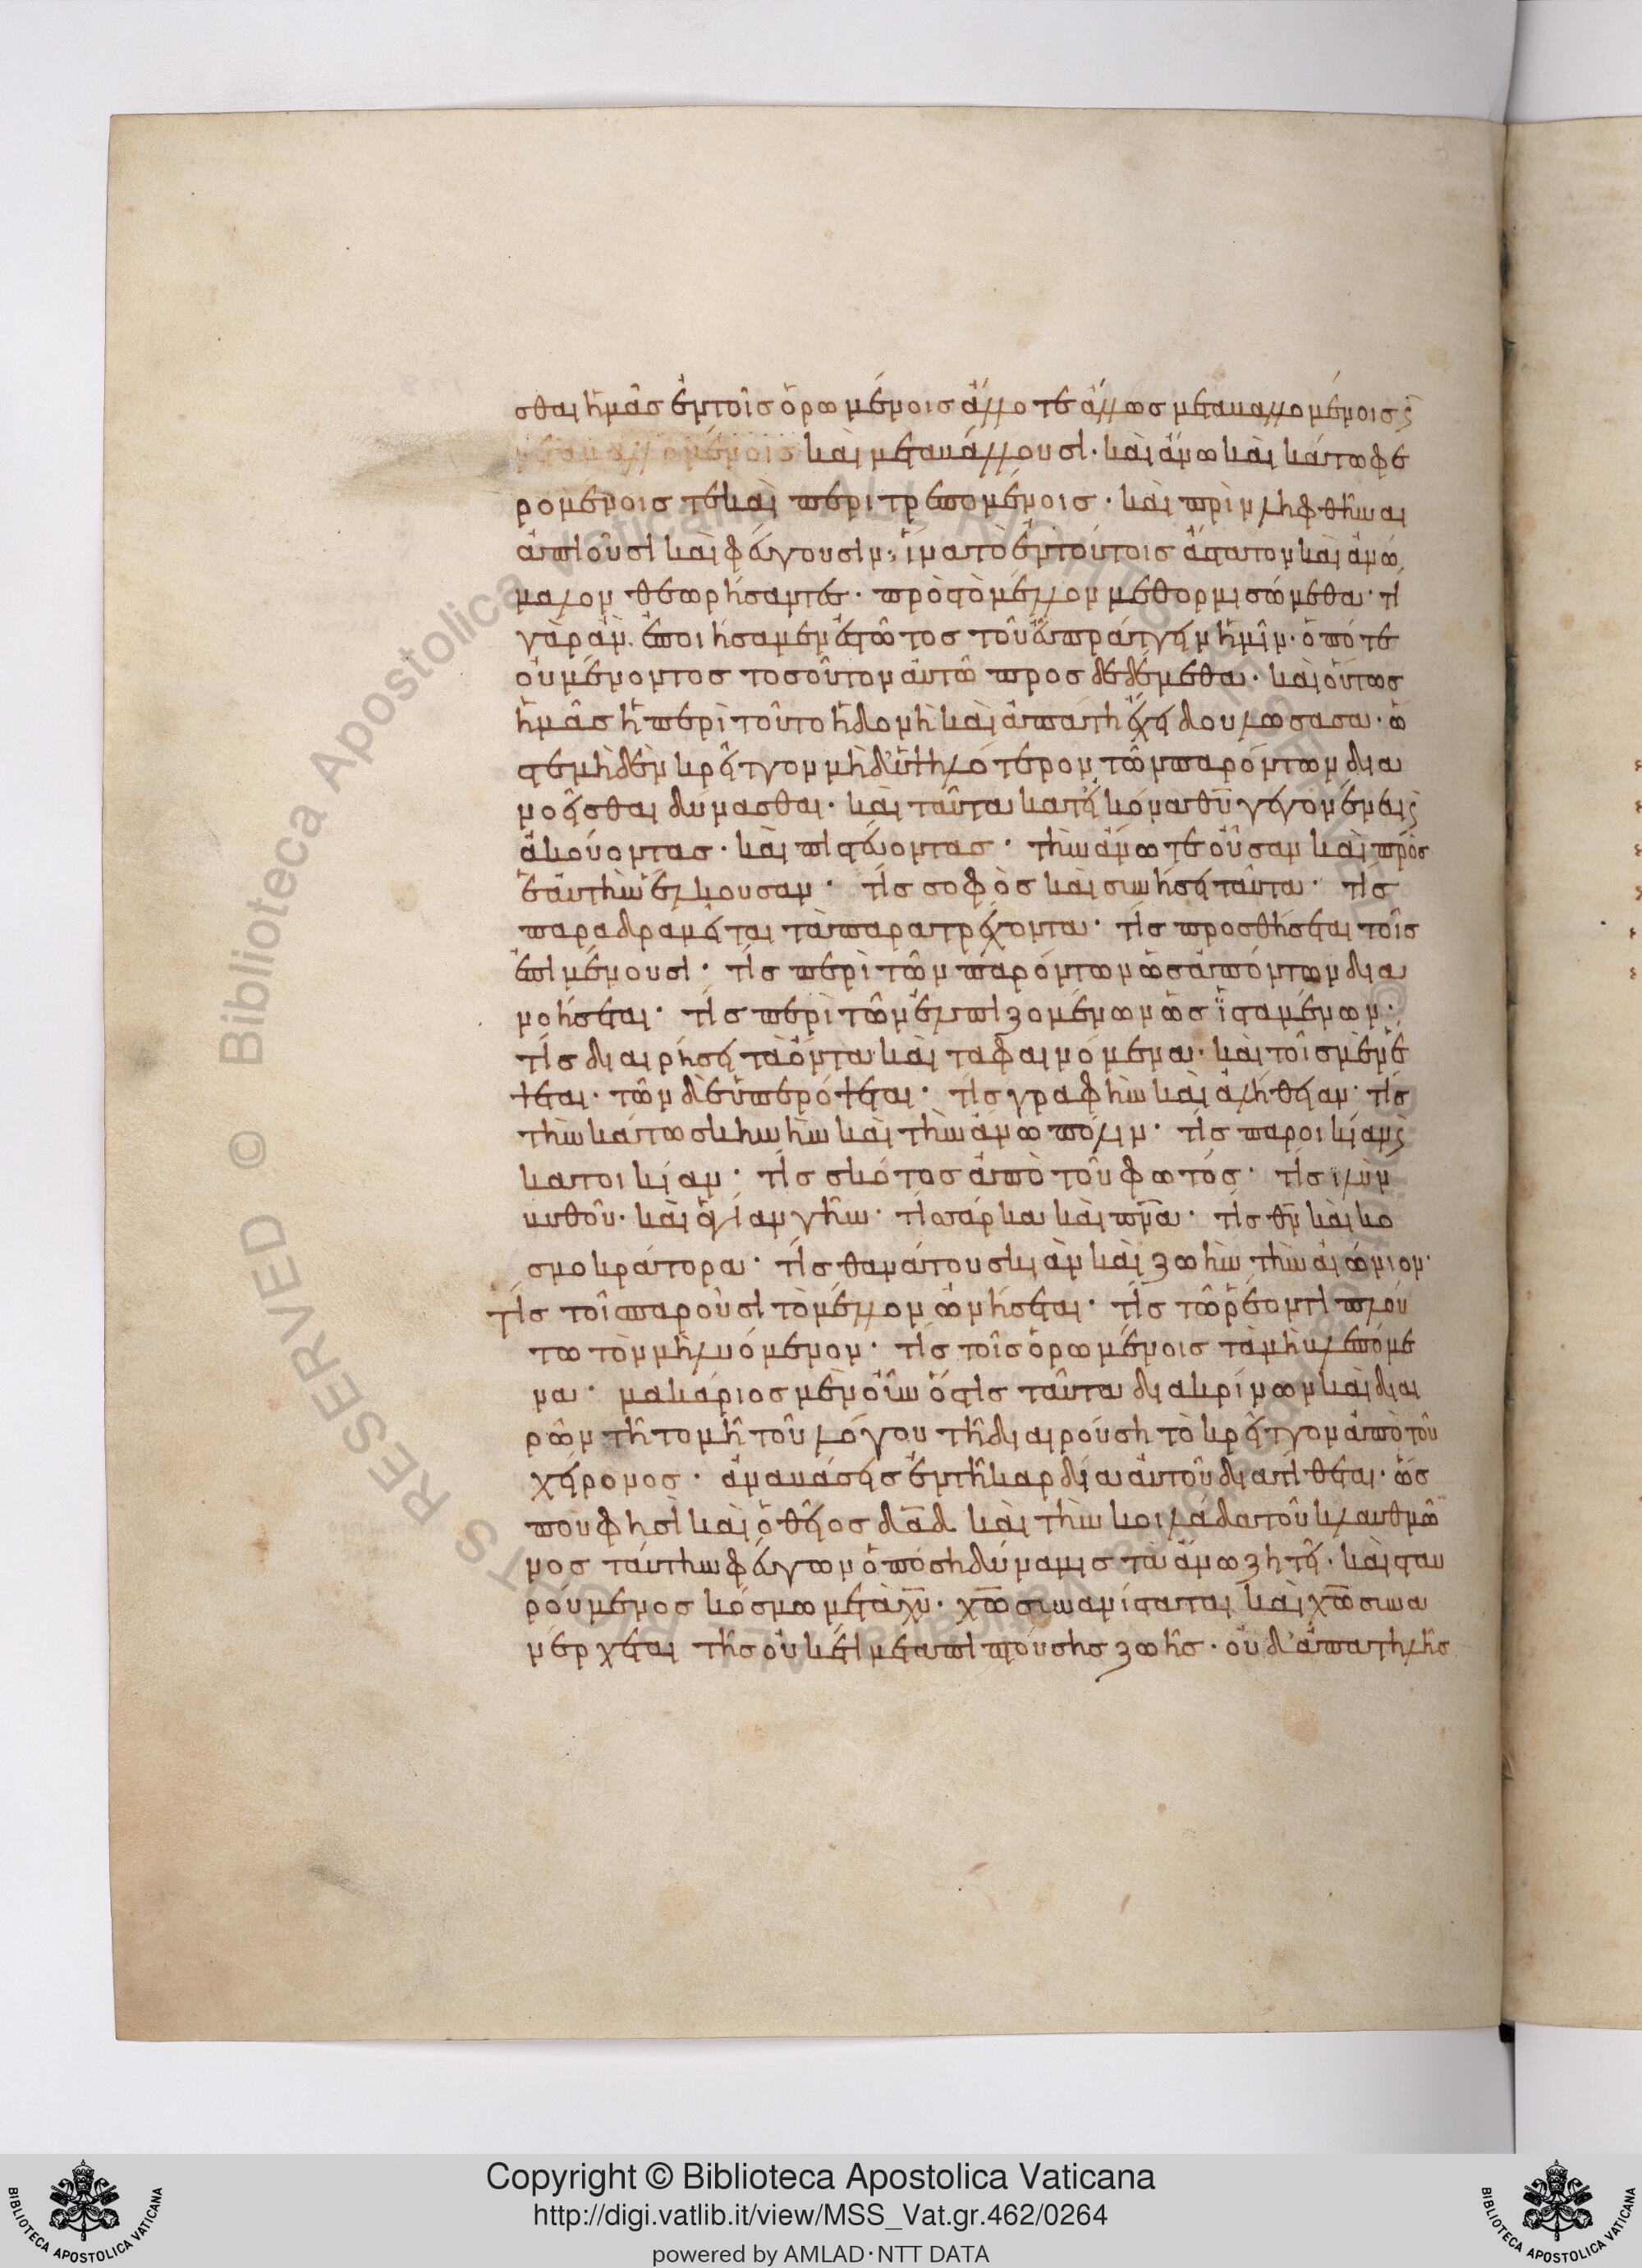 σθαι ἡμᾶς ἐν τοῖς ὁρωμένοις ἄλλοτε ἄλλως μεταβαλλομένοις ϛ
μεταβαλλομένοις καὶ μεταβάλλουσι· καὶ ἄνω καὶ κάτω φε
ρομένοις τὲ καὶ περιτρεπομένοις· καὶ πρὶν ληφθῆναι
ἀπιοῦσι καὶ φεύγουσιν· ἵνα τὸ ἐν τούτοις ἄστατον καὶ ἀνώ
μαλον θεωρήσαντες· πρὸς τὸ μέλλον μεθορμισώμεθα· τί
γὰρ ἂν ἐποιήσαμεν ἑστῶτος τοῦ εὐπραγεῖν ἡμῖν· ὁπότε
οὐ μένοντος τοσοῦτον αὐτῷ προσδεδέμεθα· καὶ οὕτως
ἡμᾶς ἡ περὶ τοῦτο ἡδονὴ καὶ ἀπάτη ἔχει δουλώσασα· ὥ
στε μηδὲν κρεῖττον μηδ' ὑψηλότερον τῶν παρόντων δια
νοεῖσθαι δύνασθαι· καὶ ταῦτα κατ' εἰκόνα θῦ γεγονέναι ϛ
ἀκούοντας· καὶ πιστεύοντας· τὴν ἄνω τε οὖσαν καὶ πρὸς
ἑαυτὴν ἕλκουσαν· τίς σοφὸς καὶ συνήσει ταῦτα· τίς
παραδραμεῖται τὰ παρατρέχοντα· τίς προσθήσεται τοῖς
ἐπιμένουσι· τίς περὶ τῶν παρόντων ὡς ἀπόντων δια
νοήσεται· τίς περὶ τῶν ἐλπιζομένων ὡς ἱσταμένων·
τίς διαιρήσει τὰ ὄντα καὶ τὰ φαινόμενα· καὶ τοῖς μὲν ἕ
ψεται· τῶν δὲ ὑπερόψεται· τίς γραφὴν καὶ ἀλήθειαν· τίς
τὴν κάτω σκηνὴν καὶ τὴν ἄνω πόλιν· τίς παροικίαν ϛ
κατοικίαν· τίς σκότος ἀπὸ τοῦ φωτός· τίς ἰλὺν
βυθοῦ· καὶ ἁγίαν γῆν· τί σάρκα καὶ πνᾶ· τίς θν καὶ κο
σμοκράτορα· τίς θανάτου σκιὰν καὶ ζωὴν τὴν αἰώνιον·
τίς τοῖς παροῦσι τὸ μέλλον ὠνήσεται· τίς τῶ ῥέοντι πλού
τω τὸν μὴ λυόμενον· τίς τοῖς ὁρωμένοις τὰ μὴ βλεπόμε
να· μακάριος μὲν οὖν ὅστις ταῦτα διακρίνων καὶ διαι
ρῶν τῆ τομῆ τοῦ λόγου τῆ διαιρούση τὸ κρεῖττον ἀπὸ τοῦ
χείρονος· ἀναβάσεις ἐν τῆ καρδία αὐτοῦ διατίθεται· ὥς
που φησὶ καὶ ὁ θεῖος δᾶδ καὶ τὴν κοιλάδα τοῦ κλαυθμῶ
νος ταύτην φεύγων ὁπόση δύναμις τὰ ἄνω ζητεῖ· καὶ σταυ
ρούμενος κόσμω μετὰ χυ· χῶ συνανίσταται καὶ χῶ συνα
νέρχεται τῆς οὐκέτι μεταπιπτούσης ζωῆς· οὐδ' ἀπατηλῆς
Copyright © Biblioteca Apostolica Vaticana
http://digi.vatlib.it/view/MSS_Vat.gr.462/0264
powered by AMLAD·NTT DATA